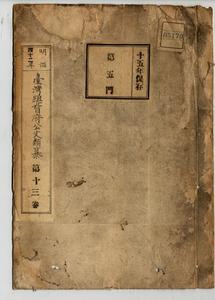 明治
四十二年
臺灣總督府公文類纂
第十三卷
十五年保存
第五門
05170